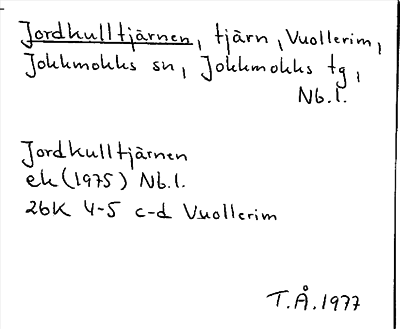 Jordkulltjärnen, tjärn, Vuollerim,
Jokkmokks sn, Jokkmokks tg,
Nb.l.
Jordkulltjärnen
ek (1975) Nb.l.
26K 4-5 c-d Vuollerim
T.Å. 1977